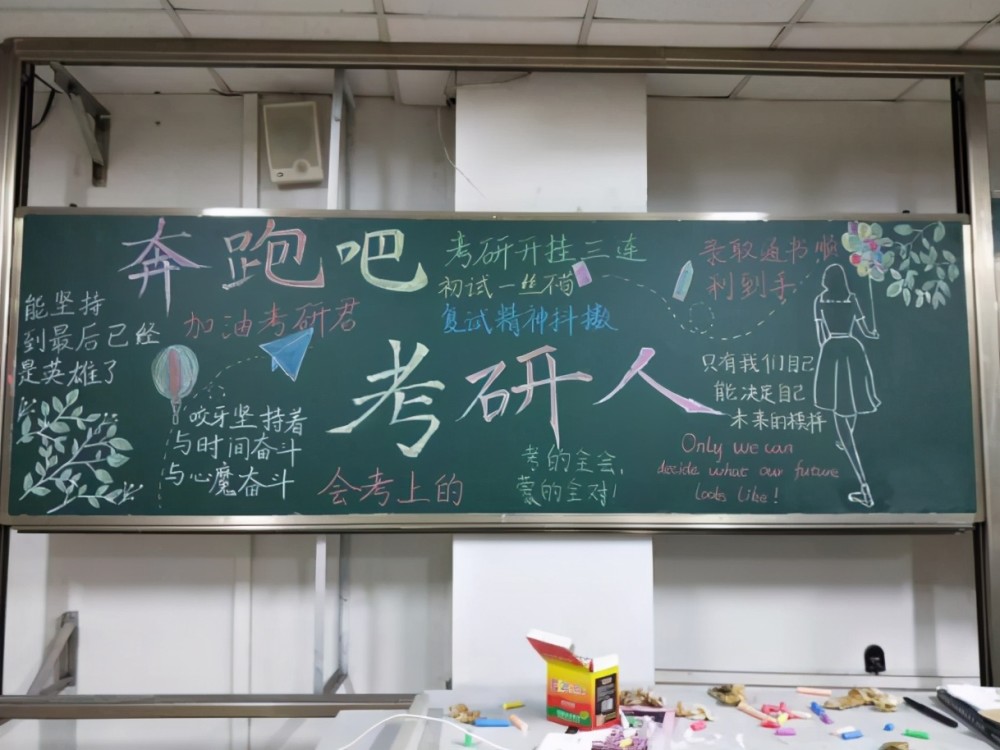 奔跑吧
考研开挂三连
初试一丝不苟
复试精神抖擞
录取通书顺
利到手
能坚持
到最后已经
是英雄了
加油考研君
考研人
只有我们自己
能决定自己
未来的模样
咬牙坚持着
与时间奋斗
与心魔奋斗
会考上的
考的全会，
蒙的全对！
Only we can
decide what our future
looks like!